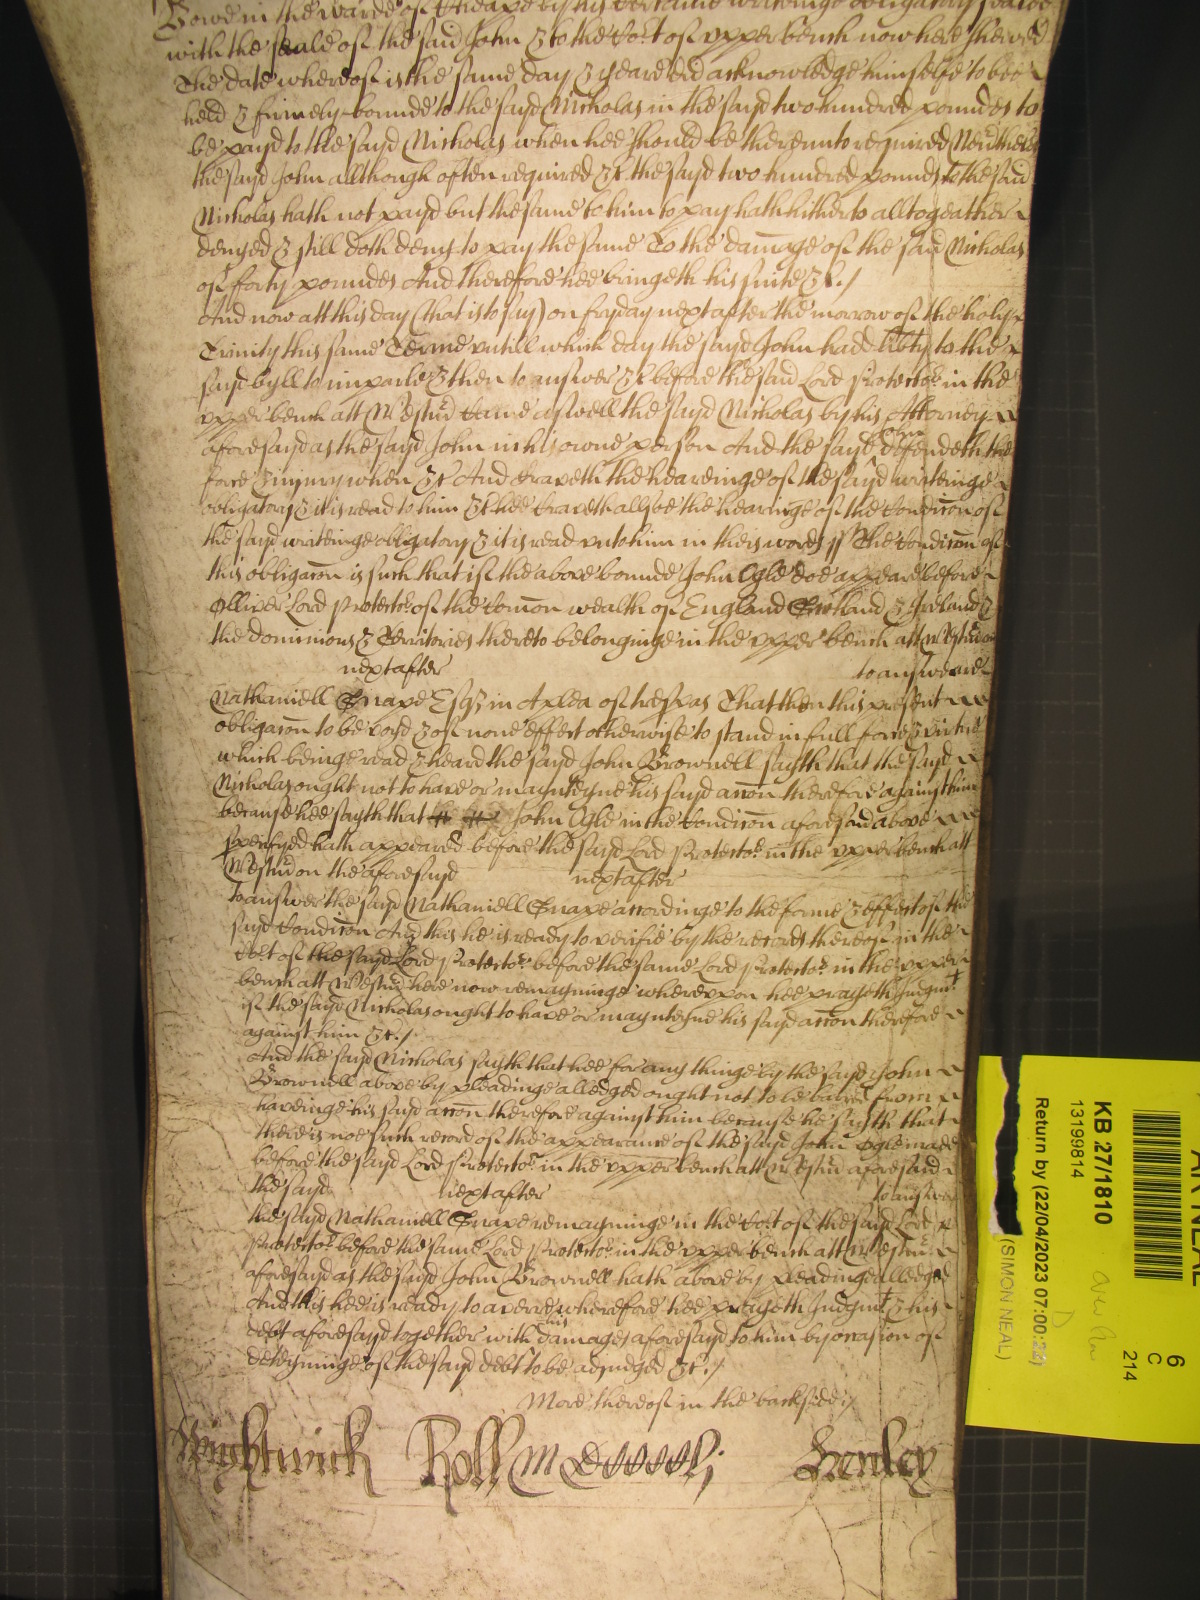 Bowe in the warde of Cheape by his certaine writeinge obligatory sealed
with the seale of the said John & to the Cort of upper bench now here shewed
The date whereof is the same day & yeare did acknowledge himselfe to bee
held & firmely bounde to the sayd Nicholas in the sayd two hundred poundes to
be payd to the sayd Nicholas when hee should be thereunto required Nevertheles
the sayd John although often required &c the sayd two hundred pounds to the said
Nicholas hath not payd but the same to him to pay hath hitherto alltogeather
denyed & still doth deny to pay the same To the damage of the said Nicholas
of forty poundes And therefore hee bringeth his suite &c./
And now att this day (that is to say) on fryday next after the morrow of the holy
Trinity this same Terme untill which day the sayd John hadd libty to the
sayd byll to imparle & then to answer &c before the said Lord Protector in the
upper bench att Westmr came aswell the sayd Nicholas by his Attorney
aforesayd as the sayd John in his owne person And the sayd John defendeth the
force & iniury when &c And craveth the heareinge of the sayd writeinge
obligatory & it is read to him &c hee craveth allsoe the hearinge of the Condicon of
the sayd writeinge obligatory & it is read unto him in theis words // The Condicon of
this obligacon is such that if the above bounde John Ogle doe appeare before
Olliver Lord Protector of the Comon wealth of England Scotland & Ireland &
the dominions & Territories thereto belonginge in the upper bench att Westmr on
next after to answeare
Nathaniell Snape Esqr in A plea of trespas That then this present
obligacon to be voyd & of none effect otherwise to stand in full force & virtue
which beinge read & heard the sayd John Brownell sayth that the sayd
Nicholas ought not to have or maynteyne his sayd accon therefore against him
because hee sayth that John Ogle in the Condicon aforesaid above
specifyed hath appeared before the sayd Lord Protector in the upper bench att
Westmr on the aforesayd next after
to answer the sayd Nathaniell Snape accordinge to the forme & effect of the
sayd Condicon And this he is ready to verifie by the records thereof in the
Cort of the sayd Lord Protector before the same Lord Protector in the upper
bench att Westmr here now remayninge whereupon hee prayeth Judgmt
if the sayd Nicholas ought to have or maynteyne his sayd accon therefore
against him &c./
And the sayd Nicholas sayth that hee for any thinge by the sayd John
Brownell above by pleadinge alledged ought not to be barred from
haveinge his sayd accon therefore against him because he sayth that
there is noe such record of the appearance of the sayd John Ogle made
before the sayd Lord Protector in the upper bench att Westmr aforesaid
the sayd next after to answer
the sayd Nathaniell Snape remayninge in the Cort of the sayd Lord
Protector before the same Lord Protector in the upper bench att Westmr
aforesayd as the sayd John Brownell hath above by pleadinge alledged
And this hee is ready to averre wherefore hee prayeth Judgmt & his
debt aforesayd together with his damages aforesayd to him by occasion of
deteyninge of the sayd debt to be adjudged &c./
More thereof in the backside./
Wightwick Roll M Henley
AR NEAL
6
C
214
KB 27/1810
13199814
Return by (22/04/2023 07:00:22)
(SIMON NEAL)